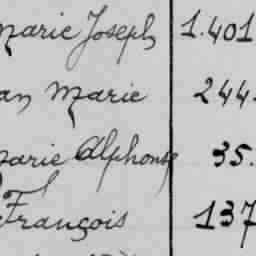 Marie Joseph 1.401
an Marie 244.
Marie Alphonse 35.
François 137